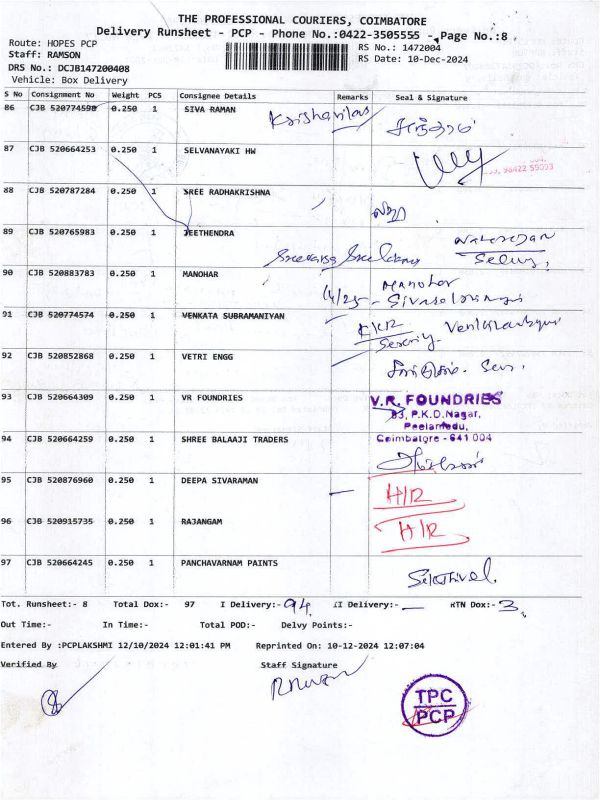 THE PROFESSIONAL COURIERS, COIMBATORE
Delivery Runsheet - PCP - Phone No.:0422-3505555 - Page No.:8
Route: HOPES PCP
Staff: RAMSON
RS No.: 1472004
DRS No.: DCJB147200408
RS Date: 10-Dec-2024
Vehicle: Box Delivery
S No Consignment No Weight PCS Consignee Details Remarks Seal & Signature
86 CJB 520774598 0.250 1 SIVA RAMAN
87 CJB 520664253 0.250 1 SELVANAYAKI HW
88 CJB 520787284 0.250 1 SREE RADHAKRISHNA
89 CJB 520765983 0.250 1 JEETHENDRA
90 CJB 520883783 0.250 1 MANOHAR Manohar
91 CJB 520774574 0.250 1 VENKATA SUBRAMANIYAN
92 CJB 520852868 0.250 1 VETRI ENGG
93 CJB 520664309 0.250 1 VR FOUNDRIES
V.R. FOUNDRIES
83, P.K.D.Nagar,
Peelamedu,
Coimbatore - 641 004
94 CJB 520664259 0.250 1 SHREE BALAAJI TRADERS
95 CJB 520876960 0.250 1 DEEPA SIVARAMAN H/R
96 CJB 520915735 0.250 1 RAJANGAM H/R
97 CJB 520664245 0.250 1 PANCHAVARNAM PAINTS
Tot. Runsheet:- 8 Total Dox:- 97 I Delivery:- 94 II Delivery:- — RTN Dox:- 3
Out Time:- In Time:- Total POD:- Delvy Points:-
Entered By :PCPLAKSHMI 12/10/2024 12:01:41 PM Reprinted On: 10-12-2024 12:07:04
Verified By Staff Signature
TPC
PCP